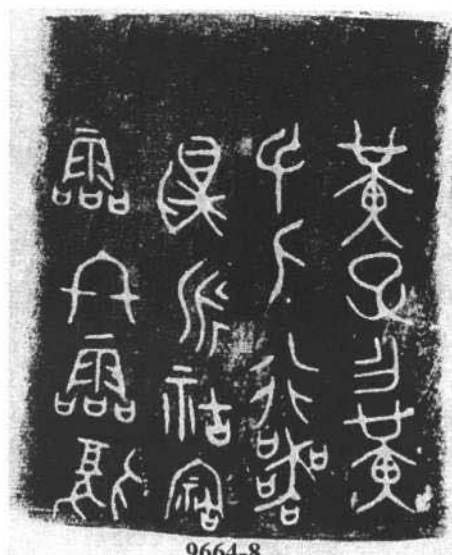 黃子乍黃
甫人行器
則永祜福
霝冬霝後
9664-8